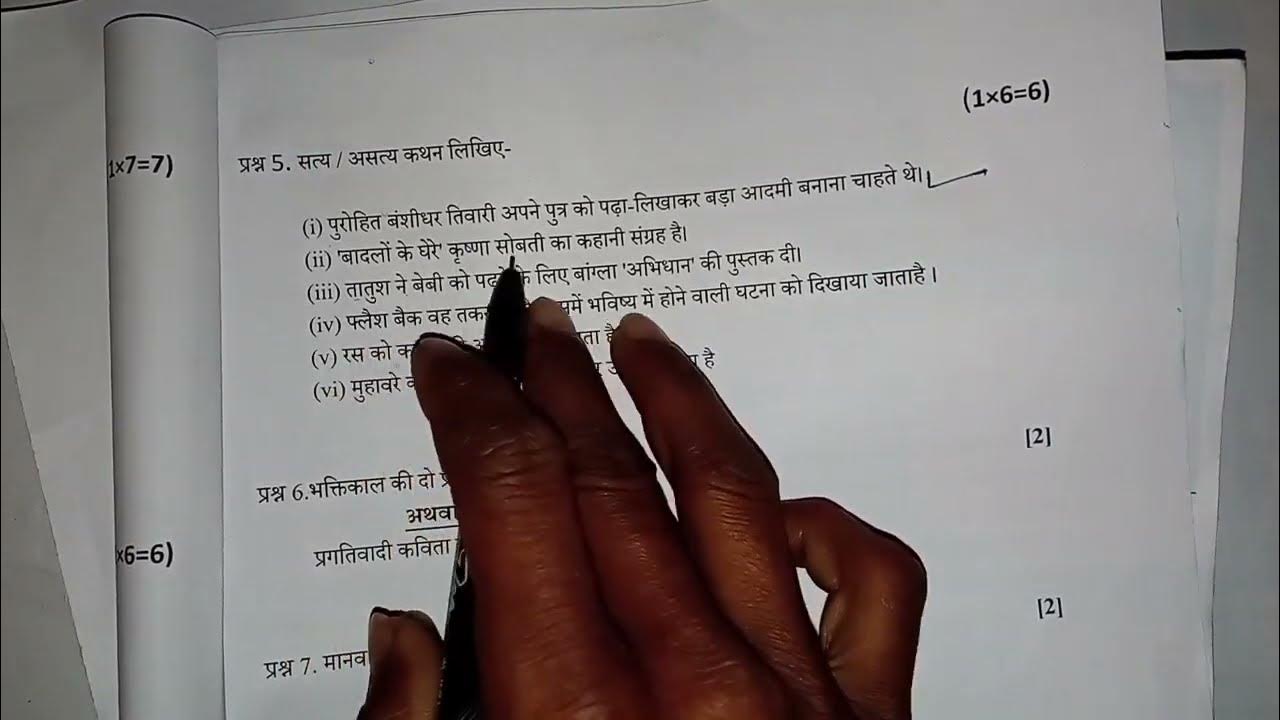 (1×6=6)
1×7=7)
प्रश्न 5. सत्य / असत्य कथन लिखिए-
(i) पुरोहित बंशीधर तिवारी अपने पुत्र को पढ़ा-लिखाकर बड़ा आदमी बनाना चाहते थे।
(ii) 'बादलों के घेरे' कृष्णा सोबती का कहानी संग्रह है।
(iii) तातुश ने बेबी को के लिए बांग्ला 'अभिधान' की पुस्तक दी।
(iv) फ्लैश बैक वह में भविष्य में होने वाली घटना को दिखाया जाताहै ।
(v) रस को
(vi) मुहावरे है
[2]
प्रश्न 6.भक्तिकाल की दो
अथवा
×6=6)
प्रगतिवादी कविता
[2]
प्रश्न 7. मानव